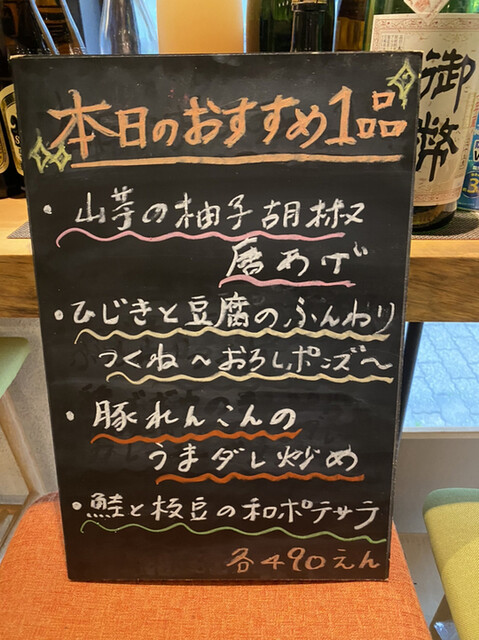 本日のおすすめ1品
・山芋の柚子胡椒
唐あげ
・ひじきと豆腐のふんわり
つくね～おろしポンズ～
・豚れんこんの
うまダレ炒め
・鮭と枝豆の和ポテサラ
各490えん
御幣